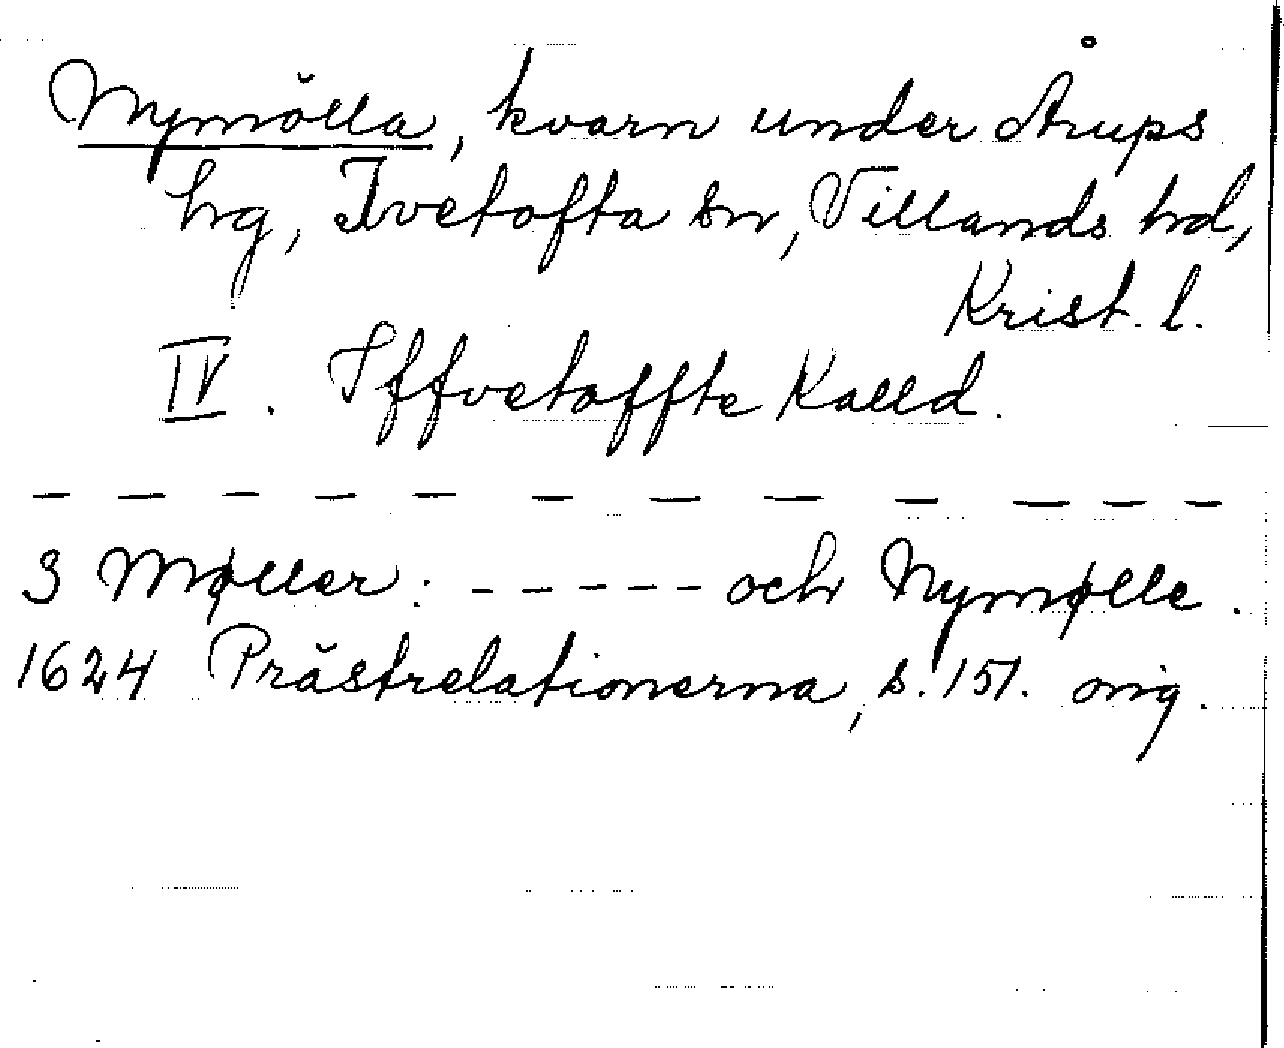 Nymölla, kvarn under Årups
hg, Ivetofta sn, Villands hd,
Krist. l.
IV. Iffvetoffte Kalld.
— — — — — — — — — — — —
3 Møller: - - - - - - och Nymølle.
1624 Prästrelationerna, s. 151. orig.